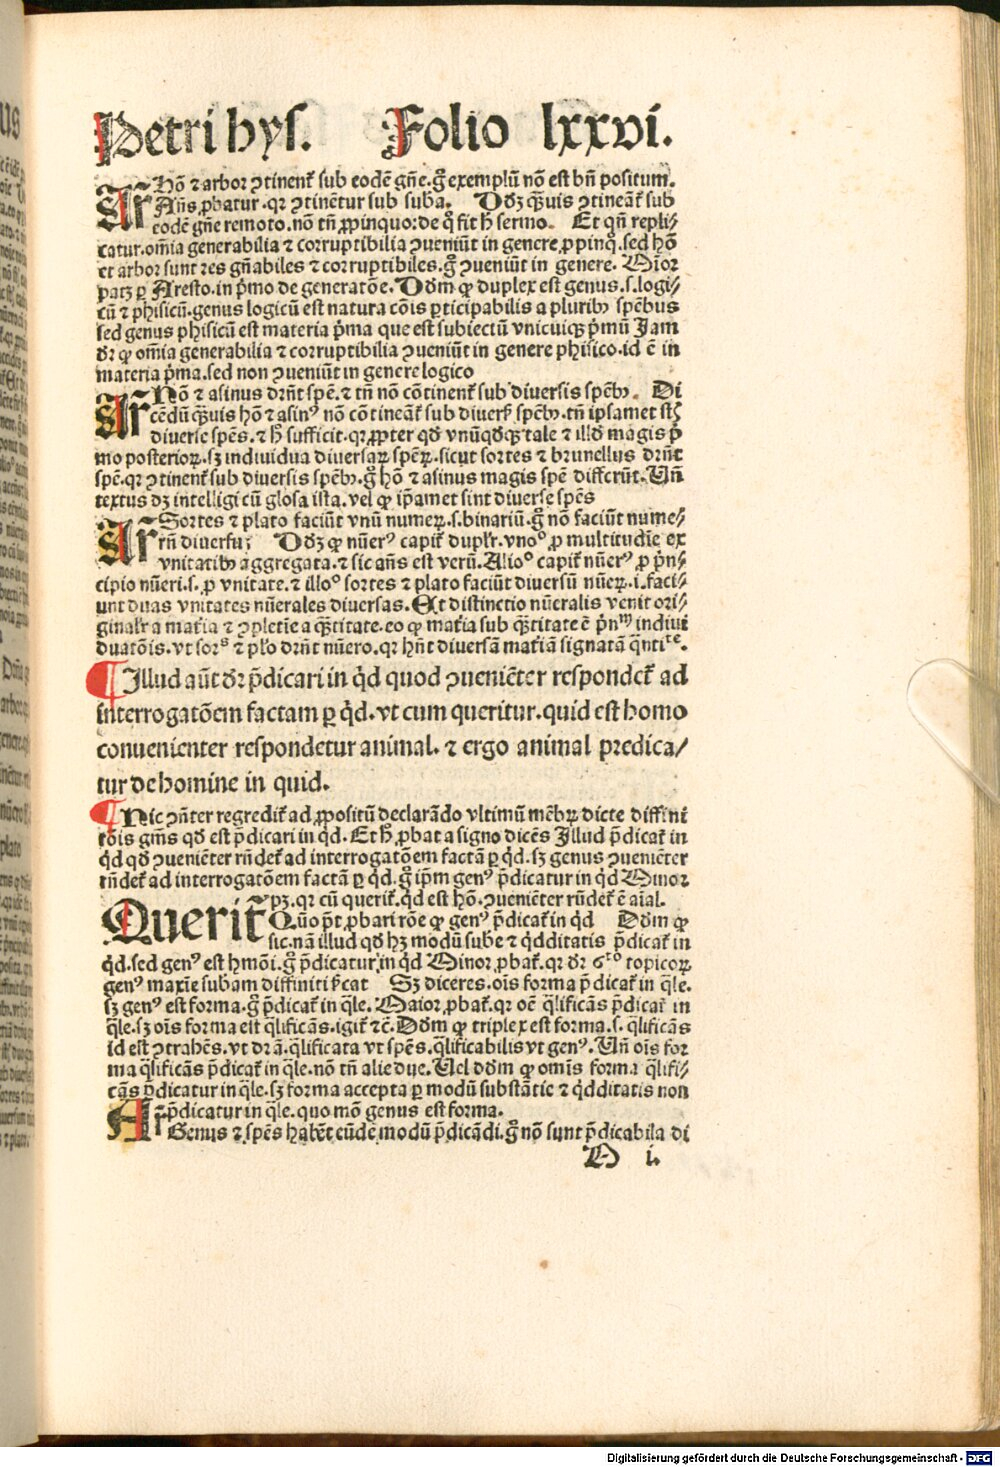 Petri hys. Folio lxxvi.
Ar̄ Hō ⁊ arbor ꝯtinent᷑ sub eodē gn̄e. g̊ exemplū nō est bn̄ positum.
An̄s ꝓbatur. qꝛ ꝯtinētur sub suba. Dd̄ꝫ qꝙuis ꝯtineāt᷑ sub
eodē gn̄e remoto. nō tn̄ ꝓpinquo: de q̊ fit h̄ sermo. Et qn̄ repli⸗
catur. om̄ia generabilia ⁊ corruptibilia ꝯueniūt in genere ꝓpinq̊. sed hō
et arbor sunt res gn̄abiles ⁊ corruptibiles. g̊ ꝯueniūt in genere. Mīor
patꝫ ꝑ Aresto. in p̄mo de generatōe. Dd̄m ꝙ duplex est genus. s. logi⸗
cū ⁊ phisicū. genus logicū est natura cōis ꝑticipabilis a pluribꝰ spēbus
sed genus phisicū est materia p̄ma que est subiectū vnicuiqꝫ p̄mū Jam
dr̄ ꝙ om̄ia generabilia ⁊ corruptibilia ꝯueniūt in genere phisico. id ē in
materia p̄ma. sed non ꝯueniūt in genere logico
Ar̄ Hō ⁊ asinus drn̄t spē. ⁊ tn̄ nō cōtinent᷑ sub diuersis spēbꝰ. Di
cēdū qꝙuis hō ⁊ asinꝰ nō cōtineāt᷑ sub diuers᷑ spēbꝰ. tn̄ ipsamet st̄
diuerse spēs. ⁊ h̄ sufficit. qꝛ ꝓpter qd̄ vnūqd̄qꝫ tale ⁊ illd̄ magis p̄
mo posterioꝝ. sꝫ indiuidua diuersaꝝ spēꝝ. sicut sortes ⁊ brunellus drn̄t
spē. qꝛ ꝯtinent᷑ sub diuersis spēbꝰ. g̊ hō ⁊ asinus magis spē differūt. Vn̄
textus dꝫ intelligi cū glosa ista. vel ꝙ ip̄amet sint diuerse spēs
Ar̄ Sortes ⁊ plato faciūt vnū numeꝝ. s. binariū. g̊ nō faciūt nume⸗
rū diuersū; Dd̄ꝫ ꝙ nūerꝰ capit᷑ duplr̄. vnoº ꝓ multitudīe ex
vnitatibꝰ aggregata. ⁊ sic an̄s est verū. Alioº capit᷑ nūerꝰ ꝓ p̄n⸗
cipio nūeri. s. ꝓ vnitate. ⁊ illoº sortes ⁊ plato faciūt diuersū nūeꝝ. i. faci⸗
unt duas vnitates nūerales diuersas. Et distinctio nūeralis venit ori⸗
ginalr̄ a mat᷑ia ⁊ ꝯpletīe a qꝙtitate. eo ꝙ mat᷑ia sub qꝙtitate ē p̄nᵐ indiui
duatōis. vt sorˢ ⁊ pło drn̄t nūero. qꝛ hn̄t diuersā mat᷑iā signatā qꝙntiᵗᵉ.
¶ Illud aūt dr̄ p̄dicari in qͥd quod ꝯueniēter respondet᷑ ad
interrogatōem factam ꝑ qͥd. vt cum queritur. quid est homo
conuenienter respondetur animal. ⁊ ergo animal predica⸗
tur de homine in quid.
¶ Hic ꝯn̄ter regredit᷑ ad ꝓpositū declarādo vltimū mēbꝝ dicte diffini
tōis gn̄is qd̄ est p̄dicari in qͥd. Et h̄ ꝓbat a signo dicēs Illud p̄dicat᷑ in
qͥd qd̄ ꝯueniēter rn̄det᷑ ad interrogatōem factā ꝑ qͥd. sꝫ genus ꝯueniēter
rn̄det᷑ ad interrogatōem factā ꝑ qͥd. g̊ ip̄m genꝰ p̄dicatur in qͥd Minor
pꝫ. qꝛ cū querit᷑. qͥd est hō. ꝯueniēter rn̄det᷑ ē aīal.
Querit᷑ Quō pt̄ ꝓbari rōe ꝙ genꝰ p̄dicat᷑ in qͥd Dd̄m ꝙ
sic. nā illud qd̄ hꝫ modū sube ⁊ qͥdditatis p̄dicat᷑ in
qͥd. sed genꝰ est hmōi. g̊ p̄dicatur in qͥd Minor ꝓbat᷑. qꝛ dr̄ 6ᵗº topicoꝝ
genꝰ maxīe subam diffiniti sꝰcat Sꝫ diceres. oīs forma p̄dicat᷑ in qͣle.
sꝫ genꝰ est forma. g̊ p̄dicat᷑ in qͣle. Maior ꝓbat᷑. qꝛ oē qͣlificās p̄dicat᷑ in
qͣle. sꝫ oīs forma est qͣlificās. igit᷑ ⁊c̄. Dd̄m ꝙ triplex est forma. s. qͣlificās
id est ꝯtrahēs. vt dr̄a. qͣlificata vt spēs. qͣlificabilis vt genꝰ. Vn̄ oīs for
ma qͣlificās p̄dicat᷑ in qͣle. nō tn̄ alie due. Vel dd̄m ꝙ omīs forma qͣlifi⸗
cās p̄dicatur in qͣle. sꝫ forma accepta ꝑ modū substātie ⁊ qͥdditatis non
p̄dicatur in qͣle. quo mō genus est forma.
Ar̄ Genus ⁊ spēs habēt eūdē modū p̄dicādi. g̊ nō sunt p̄dicabila di
M i.
Digitalisierung gefördert durch die Deutsche Forschungsgemeinschaft - DFG